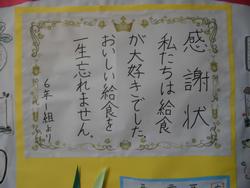 感謝状
私たちは給食
が大好きでした。
おいしい給食を
一生忘れません。
6年1組より